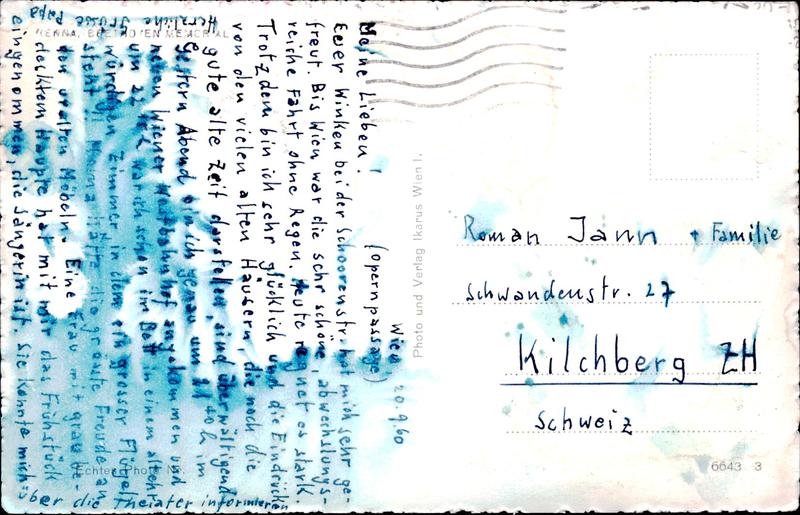 VIENNA, BEETHOVEN MEMORIAL
Wien 20.9.60
(Opernpassage)
Meine Lieben!
Euer Winken bei der Schoorenstr. hat mich sehr ge-
freut. Bis Wien war die sehr schöne, abwechslungs-
reiche Fahrt ohne Regen. Heute regnet es stark
Trotzdem bin ich sehr glücklich und die Eindrücke
von den vielen alten Häusern, die noch die
gute alte Zeit darstellen, sind überwältigend
Gestern Abend bin ich genau um 21 40 h im
neuen Wiener Westbahnhof angekommen und
um 22 war ich schon im Bett in einem sehr
würdigen Zimmer in dem ein grosser Flügel
steht! Mama hätte die grösste Freude an
den uralten Möbeln. Eine Frau mit grau be-
decktem Haupte hat mit mir das Frühstück
eingenommen, die Sängerin ist. Sie konnte mich
über die Theater informieren
Herzliche Grüsse Papa
Photo und Verlag Ikarus Wien I.
Roman Jann + Familie
Schwandenstr. 27
Kilchberg ZH
Schweiz
Echte Photo Nr.
6643 3